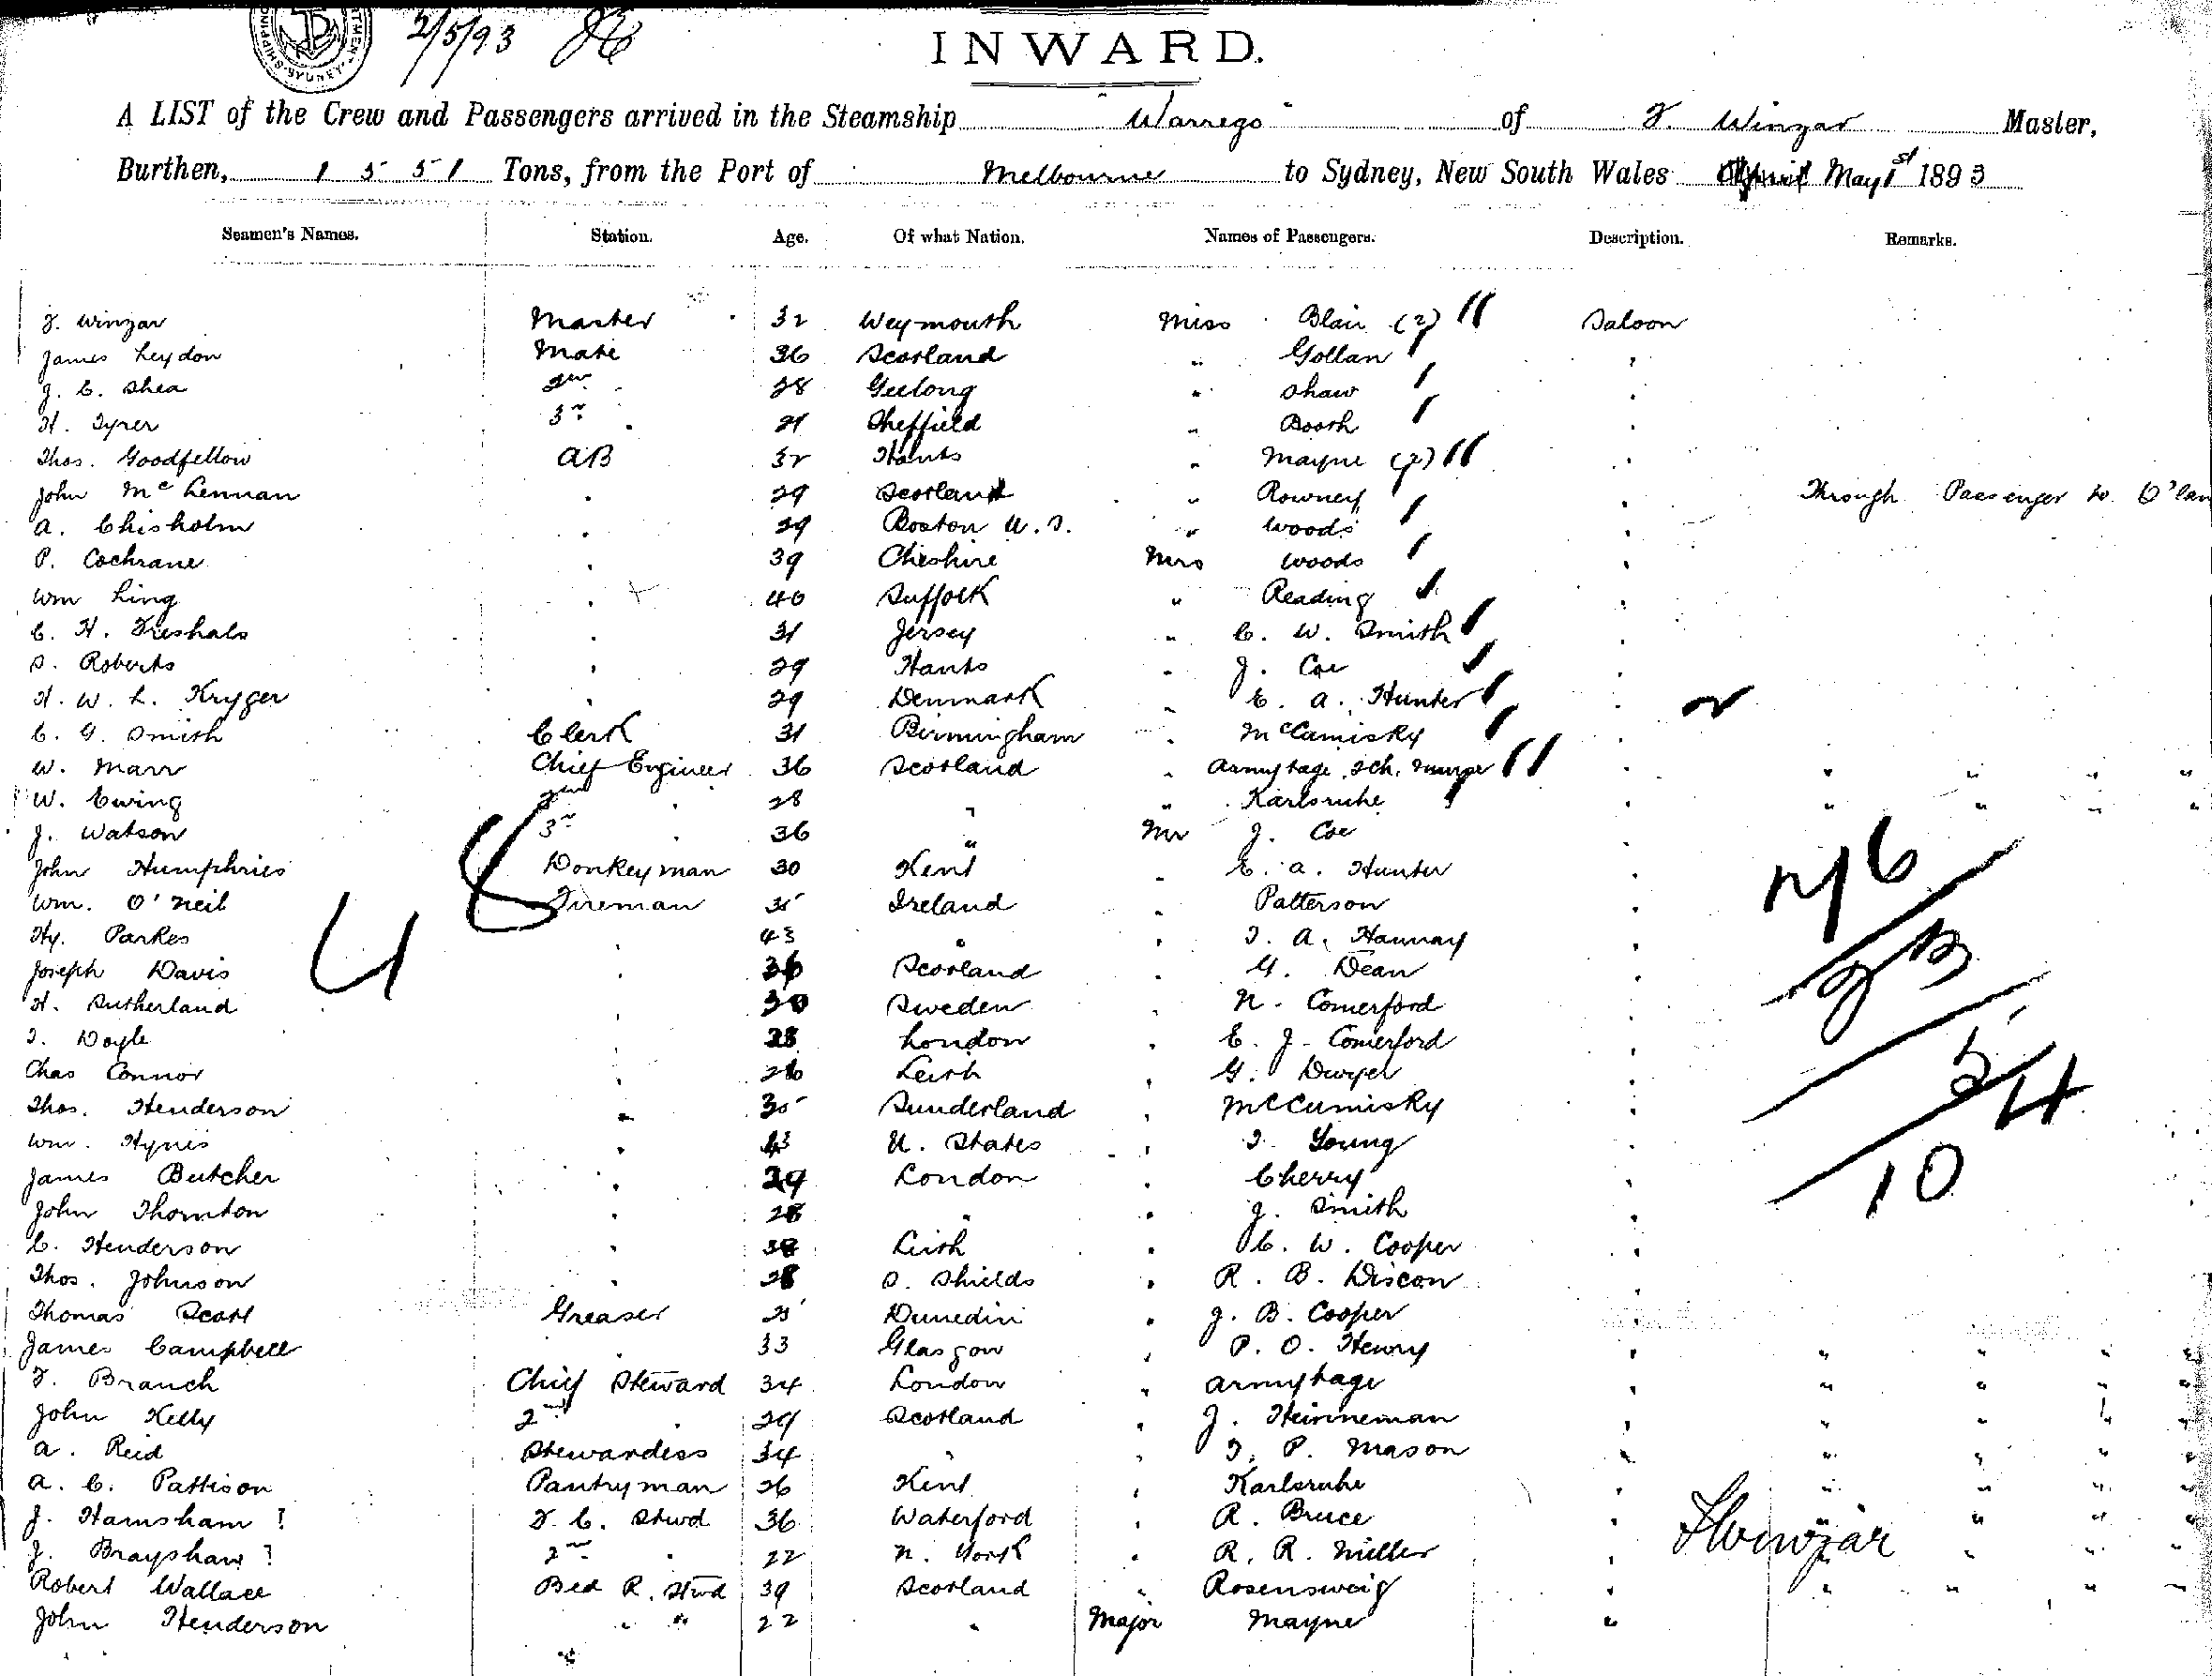 2/5/93
INWARD.
A LIST of the Crew and Passengers arrived in the Steamship "Warrego" of F. Winzar Master,
Burthen, 1551 Tons, from the Port of Melbourne to Sydney, New South Wales April May 1st 1893
Seamen's Names. Station. Age. Of what Nation. Names of Passengers. Description. Remarks.
F. Winzar Master 32 Weymouth Miss Blair (2) Saloon
James Leydon Mate 36 Scotland " Gollan "
J. C. Shea 2nd 28 Geelong " Shaw "
H. Tyrer 3rd 21 Sheffield " Booth "
Thos. Goodfellow AB 32 Hants " Mayne (2) "
John McLennan " 29 Scotland " Rowney " Through Passenger to
A. Chisholm " 29 Boston U.S. " Woods "
P. Cochrane " 39 Cheshire Mrs Woods "
Wm Ling " 40 Suffolk " Reading "
C. H. " 31 Jersey " C. W. Smith "
S. Roberts " 29 Hants " J. Coe "
H. W. L. Kryger " 29 Denmark " E. A. Hunter "
C. G. Smith Clerk 31 Birmingham " McCumisky "
W. Marr Chief Engineer 36 Scotland " Armytage, 2 ch, nurse " " " " "
W. Ewing 2nd " 28 " " Karlsruhe " " " " "
J. Watson 3rd " 36 " Mr J. Coe "
John Humphries Donkeyman 30 Kent " E. A. Hunter "
Wm. O'Neil Fireman 35 Ireland " Patterson "
Hy. Parkes " 43 " " T. A. Hannay "
Joseph Davis " 36 Scotland " G. Dean "
H. Sutherland " 30 Sweden " N. Comerford "
T. Doyle " 28 London " E. J. Comerford "
Chas Connor " 26 Leith " G. Dwyer "
Thos. Henderson " 35 Sunderland " McCumisky "
Wm. Hynes " 43 U. States " T. Young "
James Butcher " 29 London " Cherry "
John Thornton " 28 " " J. Smith "
C. Henderson " 38 Leith " C. W. Cooper "
Thos. Johnson " 28 S. Shields " R. B. Discon "
Thomas Scott Greaser 25 Dunedin " J. B. Cooper "
James Campbell " 33 Glasgow " P. O. Henry " " " " "
F. Branch Chief Steward 34 London " Armytage " " " " "
John Kelly 2nd " 29 Scotland " J. Heinneman " " " " "
A. Reid Stewardess 34 " " T. P. Mason " " " " "
A. C. Pattison Pantryman 26 Kent " Karlsruhe " " " " "
J. Hamsham ! F. C. Stwd 36 Waterford " R. Bruce " " " " "
J. Brayshaw ? 2nd " 22 N. York " R. R. Miller " " " " "
Robert Wallace Bed R. Stwd 39 Scotland " Rosensweig " " " " "
John Henderson " " 22 " Major Mayne "
F Winzar
10